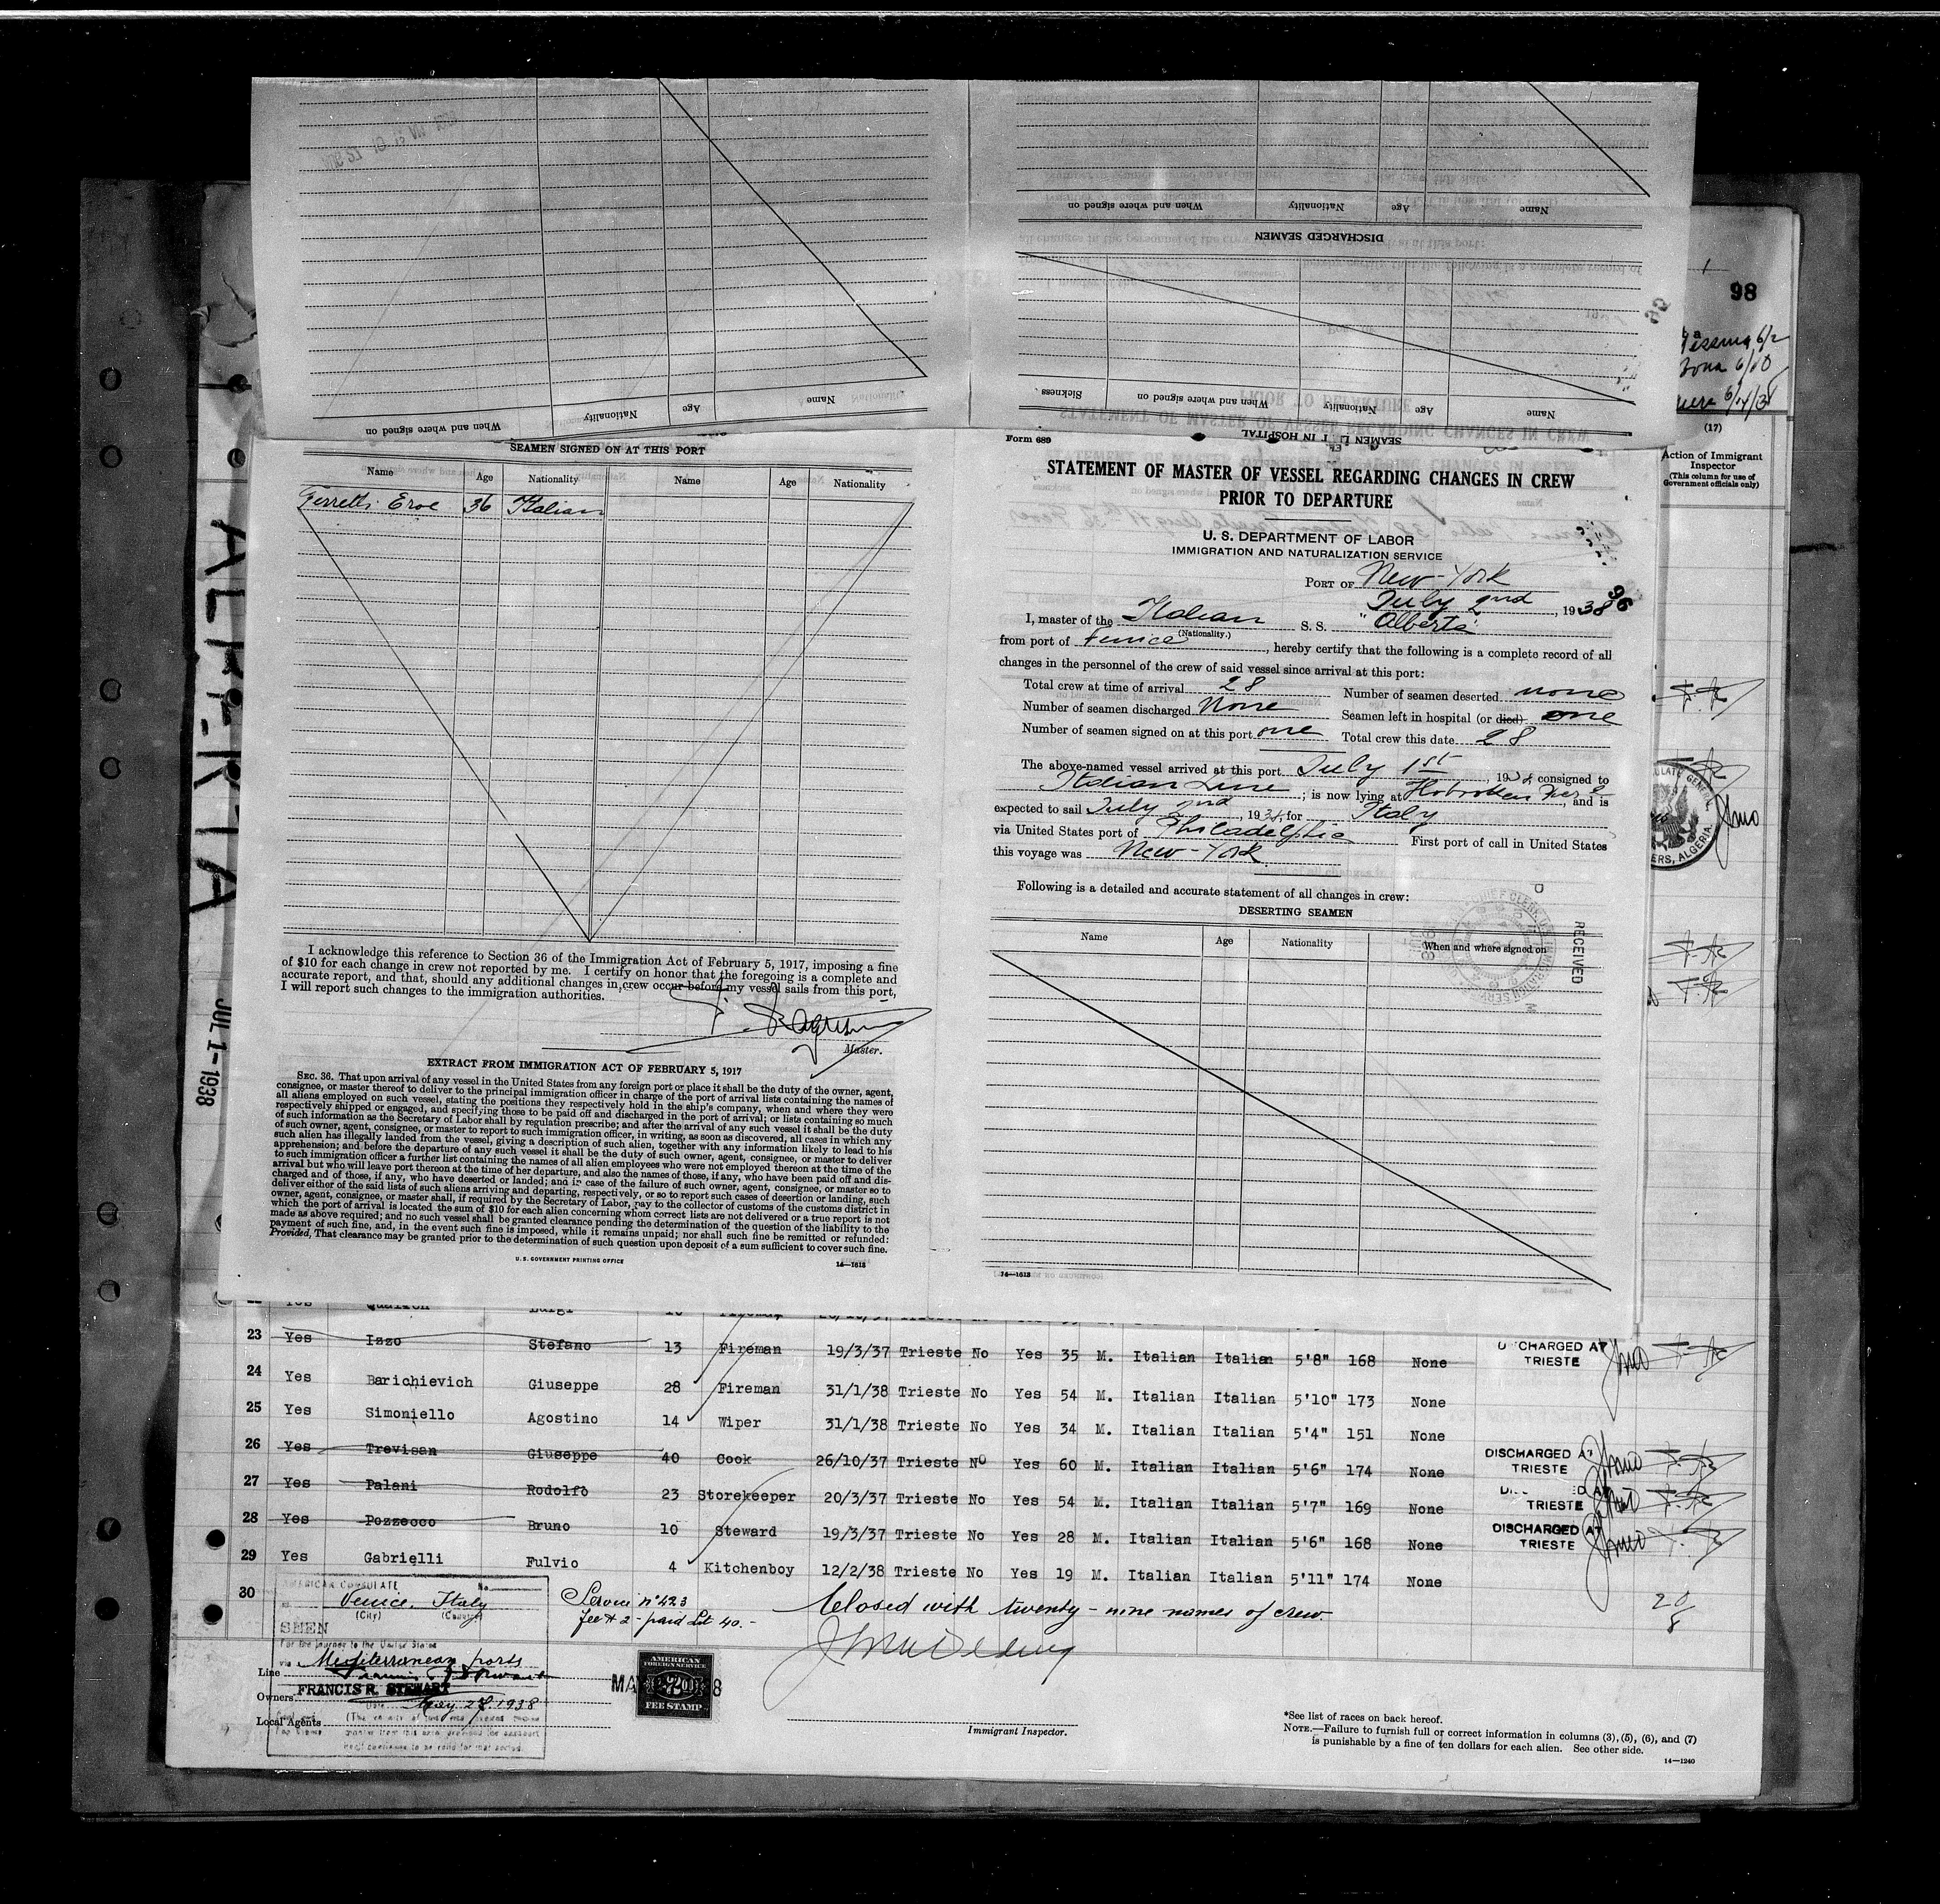 When and where signed on Nationality Age Name
DISCHARGED SEAMEN
Sickness When and where signed on Nationality Age Name
When and where signed on Nationality Age Name
SEAMEN ILL IN HOSPITAL
98
6/2
6/10
6/14/38
(17)
Action of Immigrant
Inspector
(This column for use of
Government officials only)
SEAMEN SIGNED ON AT THIS PORT
Name Age Nationality Name Age Nationality
Ferretti Eroe 36 Italian
I acknowledge this reference to Section 36 of the Immigration Act of February 5, 1917, imposing a fine
of $10 for each change in crew not reported by me. I certify on honor that the foregoing is a complete and
accurate report, and that, should any additional changes in crew occur before my vessel sails from this port,
I will report such changes to the immigration authorities.
Master.
EXTRACT FROM IMMIGRATION ACT OF FEBRUARY 5, 1917
SEC. 36. That upon arrival of any vessel in the United States from any foreign port or place it shall be the duty of the owner, agent,
consignee, or master thereof to deliver to the principal immigration officer in charge of the port of arrival lists containing the names of
all aliens employed on such vessel, stating the positions they respectively hold in the ship's company, when and where they were
respectively shipped or engaged, and specifying those to be paid off and discharged in the port of arrival; or lists containing so much
of such information as the Secretary of Labor shall by regulation prescribe; and after the arrival of any such vessel it shall be the duty
of such owner, agent, consignee, or master to report to such immigration officer, in writing, as soon as discovered, all cases in which any
such alien has illegally landed from the vessel, giving a description of such alien, together with any information likely to lead to his
apprehension; and before the departure of any such vessel it shall be the duty of such owner, agent, consignee, or master to deliver
to such immigration officer a further list containing the names of all alien employees who were not employed thereon at the time of the
arrival but who will leave port thereon at the time of her departure, and also the names of those, if any, who have been paid off and dis-
charged and of those, if any, who have deserted or landed; and in case of the failure of such owner, agent, consignee, or master so to
deliver either of the said lists of such aliens arriving and departing, respectively, or so to report such cases of desertion or landing, such
owner, agent, consignee, or master shall, if required by the Secretary of Labor, pay to the collector of customs of the customs district in
which the port of arrival is located the sum of $10 for each alien concerning whom correct lists are not delivered or a true report is not
made as above required; and no such vessel shall be granted clearance pending the determination of the question of the liability to the
payment of such fine, and, in the event such fine is imposed, while it remains unpaid; nor shall such fine be remitted or refunded:
Provided, That clearance may be granted prior to the determination of such question upon deposit of a sum sufficient to cover such fine.
U. S. GOVERNMENT PRINTING OFFICE 14—1613
Form 689
STATEMENT OF MASTER OF VESSEL REGARDING CHANGES IN CREW
PRIOR TO DEPARTURE
U. S. DEPARTMENT OF LABOR
IMMIGRATION AND NATURALIZATION SERVICE
PORT OF New-York
July 2nd, 1938
96
I, master of the Italian S. S. "Alberta"
(Nationality.)
from port of Venice, hereby certify that the following is a complete record of all
changes in the personnel of the crew of said vessel since arrival at this port:
Total crew at time of arrival 28 Number of seamen deserted none
Number of seamen discharged None Seamen left in hospital (or died) one
Number of seamen signed on at this port one Total crew this date 28
The above-named vessel arrived at this port July 1st, 1938 consigned to
Italian Line; is now lying at Hoboken Pier 2, and is
expected to sail July 2nd, 1938, for Italy
via United States port of Philadelphia First port of call in United States
this voyage was New-York
Following is a detailed and accurate statement of all changes in crew:
DESERTING SEAMEN
Name Age Nationality When and where signed on
RECEIVED
14—1613
ALBERTA
JUL 1-1938
ERS, ALGERIA
23 Yes Izzo Stefano 13 Fireman 19/3/37 Trieste No Yes 35 M. Italian Italian 5'8" 168 None DISCHARGED AT TRIESTE
24 Yes Barichievich Giuseppe 28 Fireman 31/1/38 Trieste No Yes 54 M. Italian Italian 5'10" 173 None
25 Yes Simoniello Agostino 14 Wiper 31/1/38 Trieste No Yes 34 M. Italian Italian 5'4" 151 None
26 Yes Trevisan Giuseppe 40 Cook 26/10/37 Trieste No Yes 60 M. Italian Italian 5'6" 174 None DISCHARGED AT TRIESTE
27 Yes Palani Rodolfo 23 Storekeeper 20/3/37 Trieste No Yes 54 M. Italian Italian 5'7" 169 None TRIESTE
28 Yes Pozzecco Bruno 10 Steward 19/3/37 Trieste No Yes 28 M. Italian Italian 5'6" 168 None DISCHARGED AT TRIESTE
29 Yes Gabrielli Fulvio 4 Kitchenboy 12/2/38 Trieste No Yes 19 M. Italian Italian 5'11" 174 None
30
AMERICAN CONSULATE No.
Venice, Italy
(City) (Country)
SEEN
For the journey to the United States
via Mediterranean ports
FRANCIS R. STEWART
Date May 27, 1938
Service n° 423
fee $ 2 - paid Lit 40.-
Closed with twenty-nine names of crew
Line
Owners
Local Agents
AMERICAN
FOREIGN SERVICE
FEE STAMP
Immigrant Inspector.
*See list of races on back hereof.
NOTE.—Failure to furnish full or correct information in columns (3), (5), (6), and (7)
is punishable by a fine of ten dollars for each alien. See other side.
14—1240